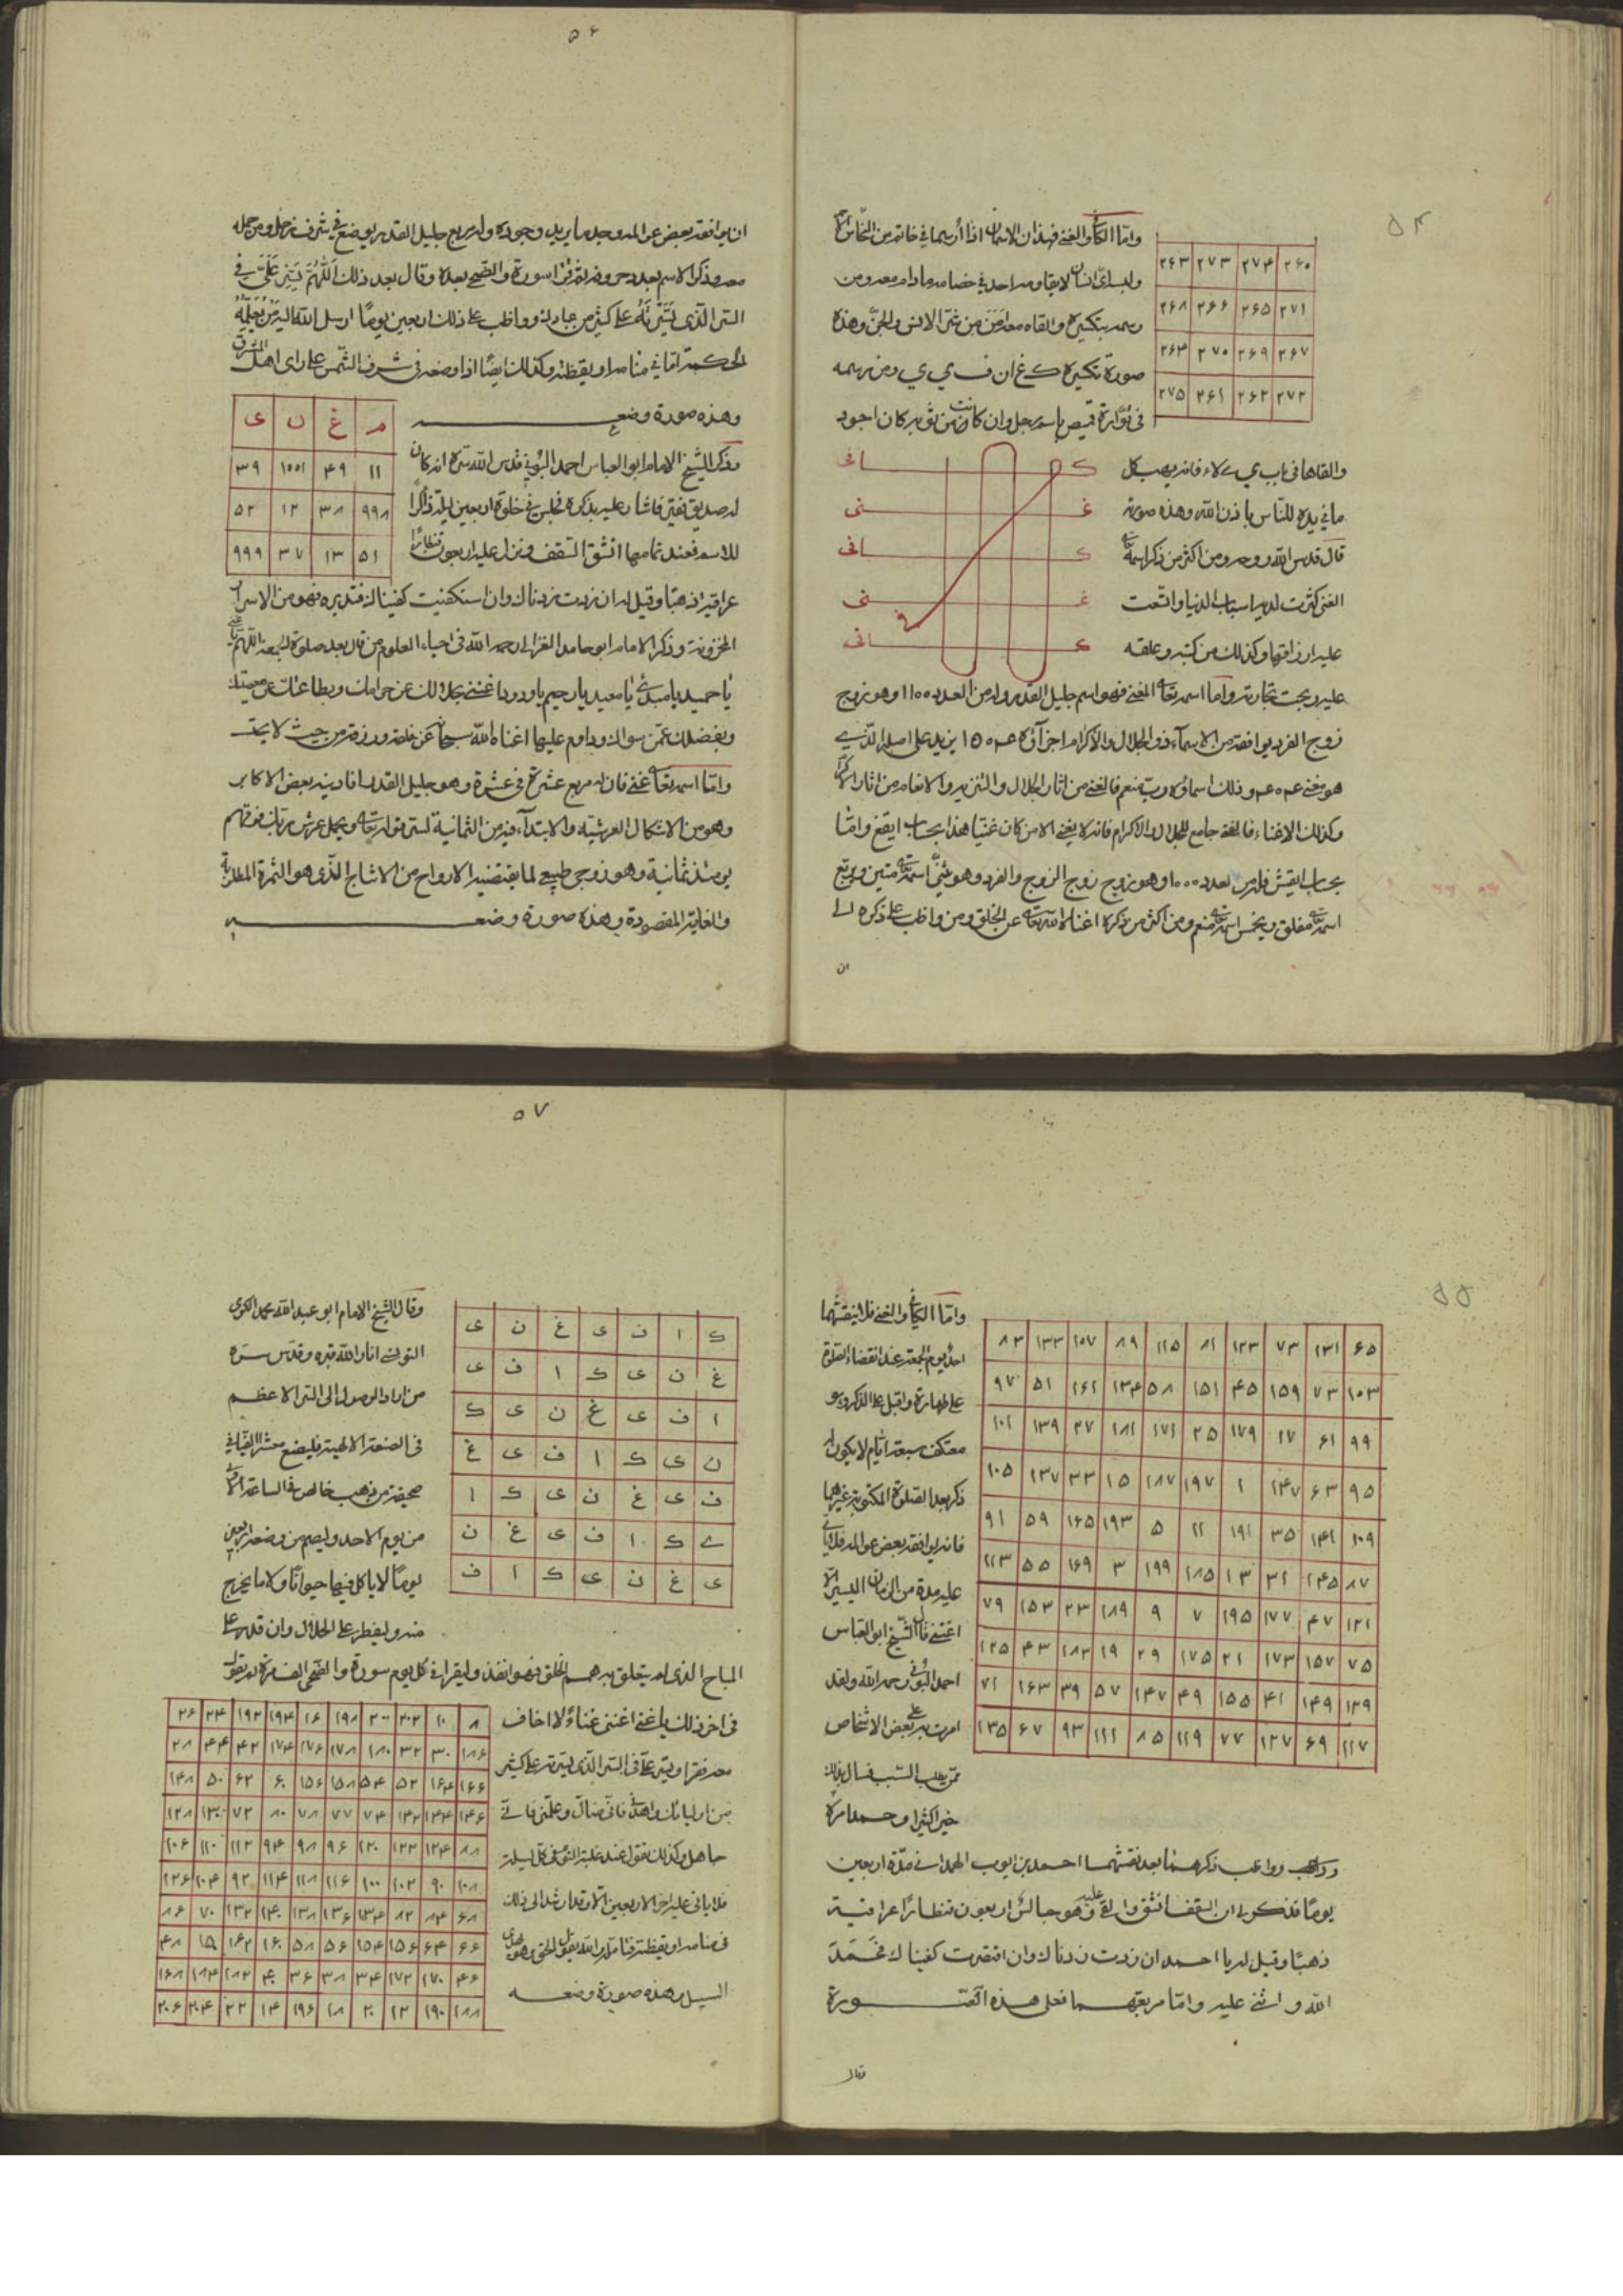 ٥٤
واما الكافي والغني فهذان الاسمان اذا رسما في خاتم من النحاس
٢٦٣ ٢٧٣ ٢٧٤ ٢٦٠
٢٦٨ ٢٦٦ ٢٦٥ ٢٧١
٢٦٤ ٢٧٠ ٢٦٩ ٢٦٧
٢٧٥ ٢٦١ ٢٦٢ ٢٧٢
ولبس اي انسان لا يقاومه احد في خصامه ما دام معه ومن
رسمه بتكسيره والقاه معه امن من شر الانس والجن وهذه
صورة تكسيره ك غ ا ن ف ي ي ومن رسمه
في قوارة قميص باسم رجل وان كانت من ثوبه كان اجود
والقاها في باب فانه يهب كل
ما في يده للناس باذن الله وهذه صورته
قال قدس الله روحه ومن اكثر من ذكر اسمه تعالى
الغني كثرت لديه اسباب الدنيا واتسعت
عليه ارزاقها وكذلك من كتبه وعلقه
ك افى
غ نى
ك افى
غ نى
ك افى
عليه ربحت تجارته واما اسمه تعالى المغني فهو اسم جليل القدر وله من العدد ١١٠٠ وهو زوج
زوج الفرد يوافقه من الاسماء ذو الجلال والاكرام اجزاؤه يزيد على اصله الذي
هو مغني وذلك اسماؤه رب منعم فالغني من اثار الجلال والتنزيه والانعام من اثار الاكرام
وكذلك الاغناء فالمغني جامع للجلال والاكرام فانه لا يغني الا من كان غنيا هذا بحساب ايقغ واما
بحساب ايقش فله من العدد وهو زوج زوج الزوج والفرد وهو يثنى اسمه تعالى متين ويربع
اسمه تعالى مغلق ويخمس اسمه تعالى منعم ومن اكثر من ذكره اغناه الله تعالى عن الخلق ومن واظب على ذكره الى
ان
٥٦
ان يوافقه بعض عوالمه وجد ما يريد وجوده وله مربع جليل القدر يوضع في شرف زحل ومن حمله
معه وذكر الاسم بعدد حروفه ثم قرا سورة والضحى بعده وقال بعد ذلك اللهم يسر على في
السر الذي يسرته على كثير من عبادك وواظب على ذلك اربعين يوما ارسل الله اليه من يعلمه
الحكمة اما في منامه او يقظته وكذلك ايضا اذا وضعه في شرف الشمس على راى اهل المشرق
وهذه صورة وضعه
م غ ن ى
١١ ٤٩ ١٠٠١ ٣٩
٩٩٨ ٣٨ ١٢ ٥٢
٥١ ١٣ ٣٧ ٩٩٩
وذكر الشيخ الامام ابو العباس احمد البوني قدس الله سره انه كان
له صديق فقير فاشار عليه بذكره فجلس في خلوة اربعين ليلة ذاكرا
للاسم فعند تمامها انشق السقف ونزل عليه اربعون قنطارا
عراقية ذهبا وقيل له ان زدت زدناك وان استكفيت كفيناك فتدبره فهو من الاسرار
المخزونة وذكر الامام ابو حامد الغزالي رحمه الله في احياء العلوم من قال بعد صلوة الجمعة اللهم يا غني
يا حميد يا مبدئ يا معيد يا رحيم يا ودود اغنني بحلالك عن حرامك وبطاعتك عن معصيتك
وبفضلك عمن سواك وداوم عليها اغناه الله سبحانه عن خلقه ورزقه من حيث لا يحتسب
واما اسمه تعالى غني فان له مربع عشرة في عشرة وهو جليل القدر افادنيه بعض الاكابر
وهو من الاشكال العرشية والابتداء فيه من الثمانية لسر قوله تعالى ويحمل عرش ربك فوقهم
يومئذ ثمانية وهو زوجي طبيعي لما يقتضيه الارواح من الاشباح الذي هو الثمرة المطلوبة
والغاية المقصودة وهذه صورة وضعه
٥٥
واما الكافي والغني فلا ينقشهما
احد يوم الجمعة عند انقضاء الصلوة
على طهارة واقبل على الذكر وهو
معتكف سبعة ايام لا يكون له
ذكر بعد الصلوة المكتوبة غيرهما
فانه يوافقه بعض عوالمه فلا ياتي
عليه مدة من الزمان اليسير الا
اغتنى قال الشيخ ابو العباس
احمد البوني رحمه الله ولقد
امرت به على بعض الاشخاص
ممن يطلب السبب فنال بذلك
خيرا كثيرا وحمد امره
٨٣ ١٣٣ ١٠٧ ٨٩ ١١٥ ٨١ ١٢٣ ٧٣ ١٣١ ٦٥
٩٧ ٥١ ١٦١ ١٣٤ ٥٨ ١٥١ ٤٥ ١٥٩ ٧٣ ١٠٣
١٠١ ١٣٩ ٢٧ ١٨١ ١٧١ ٢٥ ١٧٩ ١٧ ٦١ ٩٩
١٠٥ ١٣٧ ٣٣ ١٥ ١٨٧ ١٩٧ ١ ١٤٧ ٦٣ ٩٥
٩١ ٥٩ ١٦٥ ١٩٣ ٥ ١١ ١٩١ ٣٥ ١٤١ ١٠٩
١١٣ ٥٥ ١٦٩ ٣ ١٩٩ ١٨٥ ١٣ ٣١ ١٤٥ ٨٧
٧٩ ١٥٣ ٢٣ ١٨٩ ٩ ٧ ١٩٥ ١٧٧ ٤٧ ١٢١
١٢٥ ٤٣ ١٨٣ ١٩ ٢٩ ١٧٥ ٢١ ١٧٣ ١٥٧ ٧٥
٧١ ١٦٣ ٣٩ ٥٧ ١٤٧ ٤٩ ١٥٥ ٤١ ١٤٩ ١٢٩
١٣٥ ٦٧ ٩٣ ١١١ ٨٥ ١١٩ ٧٧ ١٢٧ ٦٩ ١١٧
وواظب ذكرهما بعد نقشهما احمد بن ايوب الهمداني مدة اربعين
يوما فذكر لي ان السقف انشق والقي عليه وهو جالس اربعون قنطارا عراقية
ذهبا وقيل له يا احمد ان زدت زدناك وان اقتصرت كفيناك فحمد
الله واثنى عليه واما مربعهما فعلى هذه الصورة
وقال
٥٧
وقال الشيخ الامام ابو عبد الله محمد الكومى
التونسي انار الله قبره وقدس سره
من اراد الوصول الى السر الاعظم
في الصنعة الالهية فليضع
صحيفة من ذهب خالص في الساعة الاولى
من يوم الاحد وليصم من وضعه اربعين
يوما لا ياكل فيها حيوانا ولا ما يخرج
منه وليفطر على الحلال وان قدر على
ك ا ف ى غ ن ى
غ ن ى ك ا ف ى
ا ف ى غ ن ى ك
ن ى ك ا ف ى غ
ف ى غ ن ى ك ا
ى ك ا ف ى غ ن
ى غ ن ى ك ا ف
المباح الذي لم يتعلق به همم الخلق فهو انفذ وليقرا في كل يوم سورة والضحى الف مرة ثم يقول
في اخر ذلك يا غني اغنني غناء لا اخاف
معه فقرا ويسر علي في السر الذي يسرته على كثير
من اوليائك واهدني فاني ضال وعلمني فاني
جاهل وكذلك يقول عند غلبة النوم في كل ليلة
فلا ياتي عليه اخر الاربعين الا وقد ارشد الى ذلك
في منامه او يقظته والله يقول الحق وهو يهدي
السبيل وهذه صورة وضعه
٢٦ ٢٤ ١٩٢ ١٩٤ ١٦ ١٩٨ ٢٠٠ ٢٠٢ ١٠ ٨
٢٨ ٤٤ ٤٢ ١٧٤ ١٧٦ ١٧٨ ١٨٠ ٣٢ ٣٠ ١٨٦
١٤٨ ٥٠ ٦٢ ٦٠ ١٥٦ ١٥٨ ٥٤ ٥٢ ١٦٤ ١٦٦
١٢٨ ١٣٠ ٧٢ ٨٠ ٧٨ ٧٧ ٧٤ ١٤٢ ١٤٤ ١٤٦
١٠٦ ١١٠ ١١٢ ٩٤ ٩٨ ٩٦ ١٢٠ ١٢٢ ١٢٤ ٨٨
١٢٦ ١٠٤ ٩٢ ١١٤ ١١٨ ١١٦ ١٠٠ ١٠٢ ٩٠ ١٠٨
٨٦ ٧٠ ١٣٢ ١٤٠ ١٣٨ ١٣٦ ١٣٤ ٨٢ ٨٤ ٦٨
٤٨ ١٥ ١٦٢ ١٦٠ ٥٨ ٥٦ ١٥٤ ١٥٦ ٦٤ ٦٦
١٦٨ ١٨٤ ١٨٢ ٤٠ ٣٦ ٣٨ ٣٤ ١٧٢ ١٧٠ ٤٦
٢٠٦ ٢٠٤ ٢٢ ١٤ ١٩٦ ١٨ ٢٠ ١٢ ١٩٠ ١٨٨